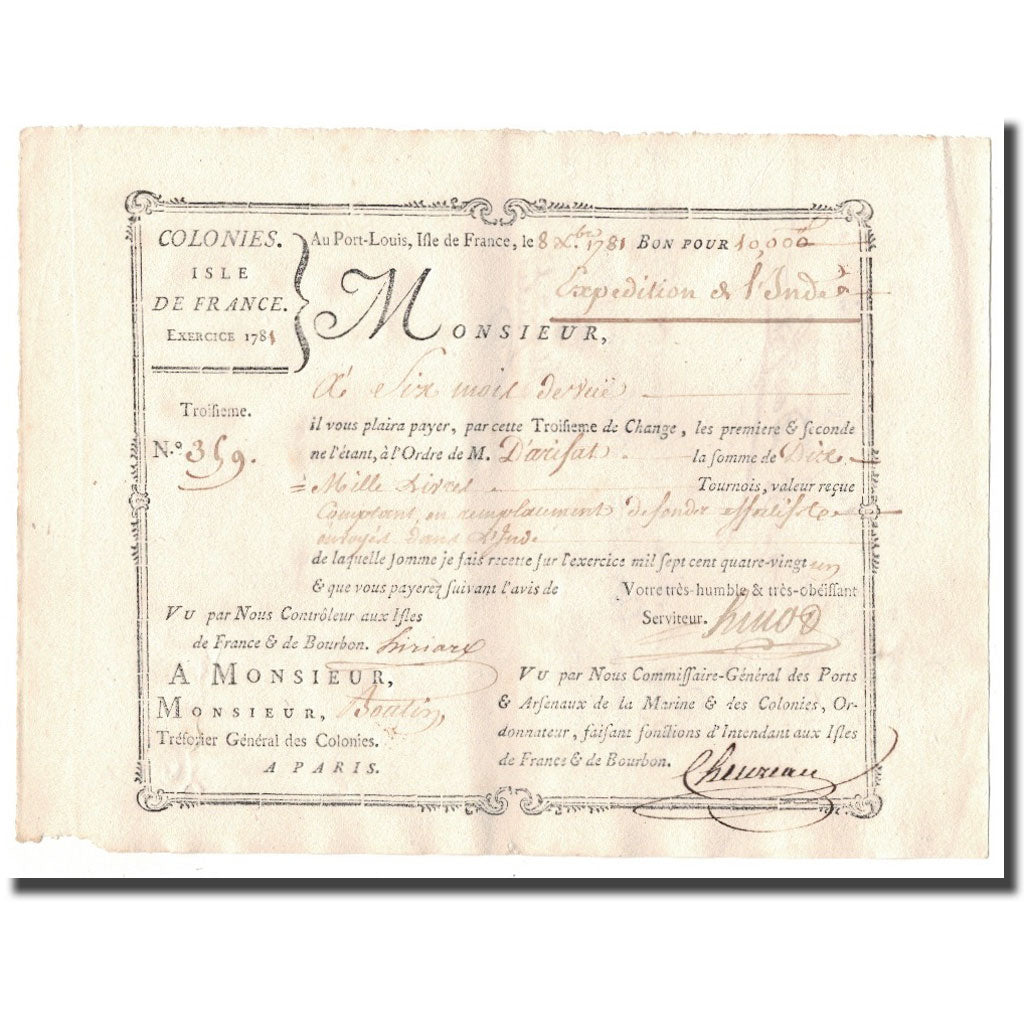 COLONIES.
ISLE
DE FRANCE.
EXERCICE 1781
Au Port-Louis, Isle de France, le 8 Xbre 1781 BON POUR 10,000
Expedition de l'Inde
MONSIEUR,
A Six mois de vuë
Troisieme.
il vous plaira payer, par cette Troisieme de Change, les premiere & seconde
N.º 359.
ne l'étant, à l'Ordre de M. Darifat la somme de Dix
= Mille Livres Tournois, valeur reçue
Comptant, en remplacement de fonds effectifs
envoyés dans l'Inde
de laquelle somme je fais recette sur l'exercice mil sept cent quatre-vingt un
& que vous payerez suivant l'avis de Votre très-humble & très-obéissant
Serviteur.
VU par Nous Contrôleur aux Isles
de France & de Bourbon.
A MONSIEUR,
MONSIEUR, Boutin,
Trésorier Général des Colonies.
A PARIS.
VU par Nous Commissaire-Général des Ports
& Arsenaux de la Marine & des Colonies, Or-
donnateur, faisant fonctions d'Intendant aux Isles
de France & de Bourbon. Chevreau